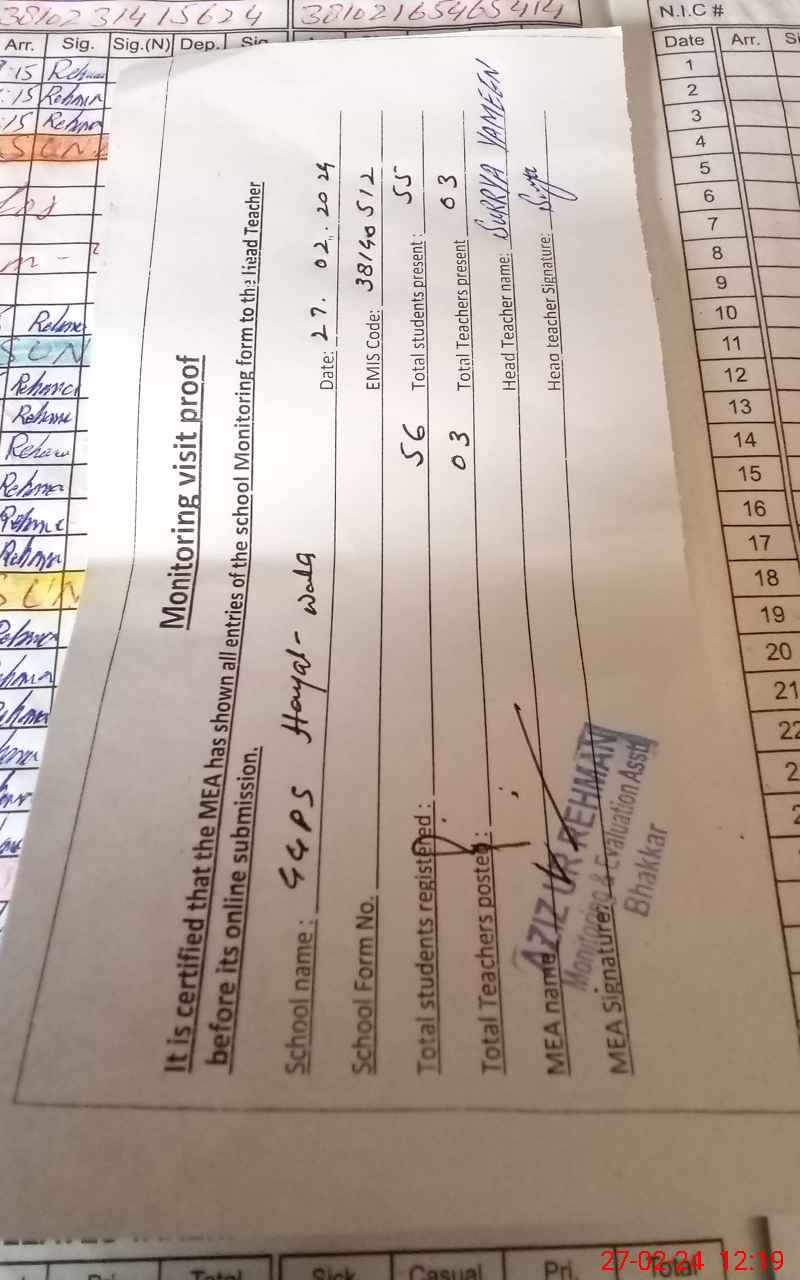 38102 31415624
38102165465414
N.I.C #
Arr. Sig. Sig.(N) Dep. Sig
Date Arr.
:15 Rehma
:15 Rehma
15 Rehma
SUN
Rehma
SUN
Rehma
Rehma
Rehma
Rehma
Rehma
Rehma
SUN
Rehma
Monitoring visit proof
It is certified that the MEA has shown all entries of the school Monitoring form to the Head Teacher
before its online submission.
School name : GGPS Hayat-wala Date: 27.02.2024
School Form No. EMIS Code: 38140512
Total students registered : 56 Total students present : 55
Total Teachers posted : 03 Total Teachers present 03
MEA name Head Teacher name: SURRYA YAMEEN
MEA Signature: Head teacher Signature:
AZIZ UR REHMAN
Monitoring & Evaluation Asstt
Bhakkar
1
2
3
4
5
6
7
8
9
10
11
12
13
14
15
16
17
18
19
20
21
22
Total Sick Casual Pri. Total
27-02-24 12:19